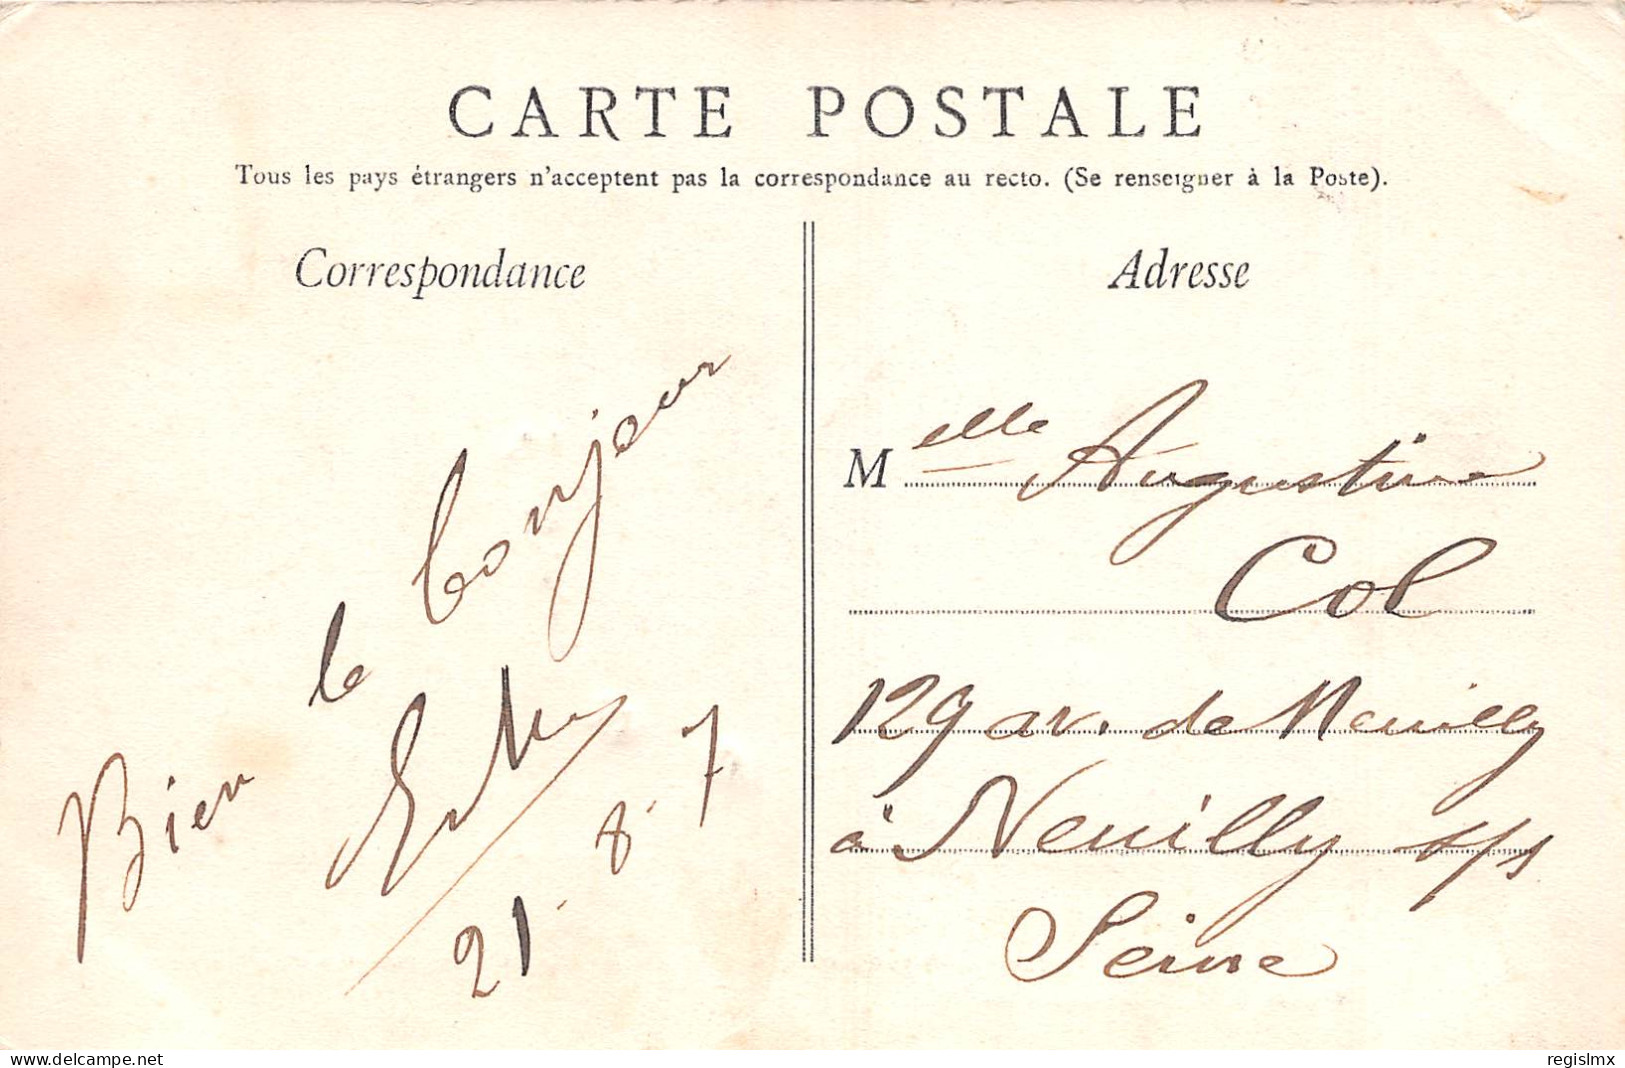 CARTE POSTALE
Tous les pays étrangers n'acceptent pas la correspondance au recto. (Se renseigner à la Poste).
Correspondance
Bien le bonjour
21. 8. 7
Adresse
Melle Augustine
Col
129 av. de Neuilly
à Neuilly s/s
Seine
www.delcampe.net
regislmx